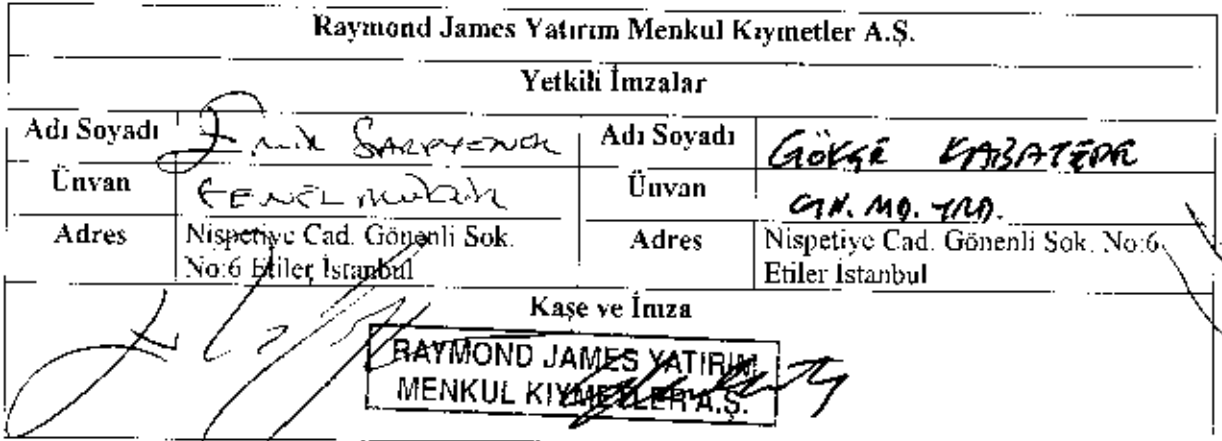 Raymond James Yatırım Menkul Kıymetler A.Ş.
Yetkili İmzalar
Adı Soyadı
Adı Soyadı GÖKÇE KABATEPE
Ünvan GENEL MÜDÜR
Ünvan GN. MD. YRD.
Adres Nispetiye Cad. Gönenli Sok.
No:6 Etiler İstanbul
Adres Nispetiye Cad. Gönenli Sok. No:6
Etiler İstanbul
Kaşe ve İmza
RAYMOND JAMES YATIRIM
MENKUL KIYMETLER A.Ş.